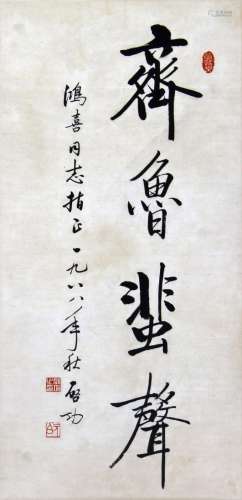 齊魯蜚聲
鴻喜同志指正一九八八年秋启功